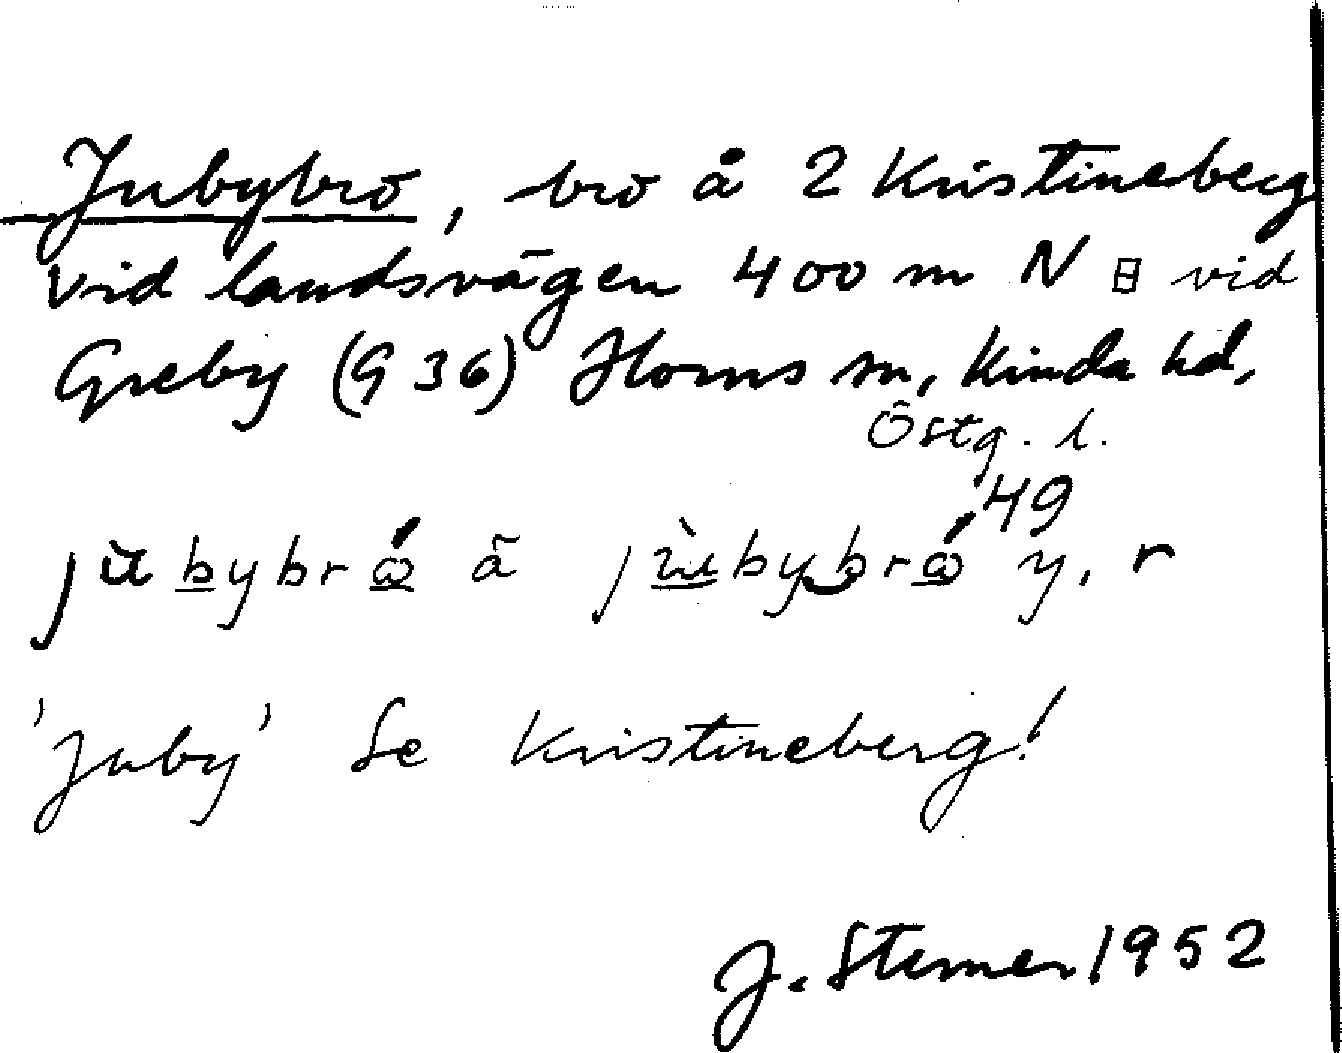 Jubybro, bro å 2 Kristineberg
vid landsvägen 400 m N vid
Greby (G 36) Horns sn, Kinda hd,
Östg. l.
49
jubybrώ ā jùbybrώ y, r
'Juby' Se Kristineberg!
J. Sterner 1952